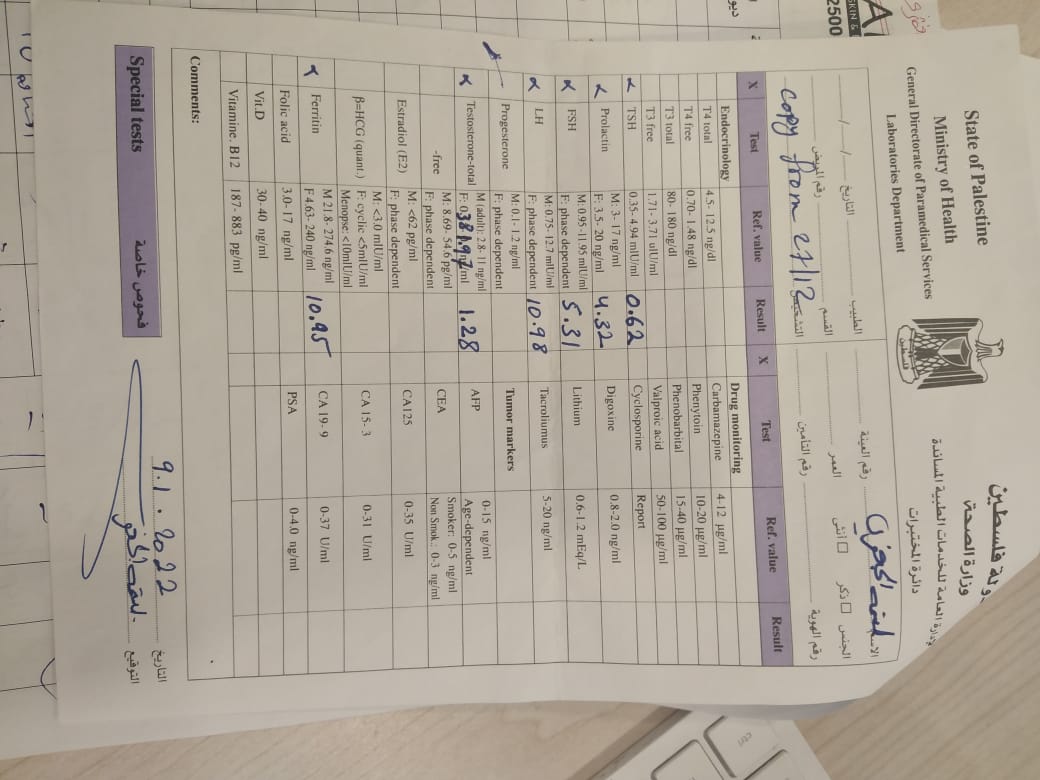 State of Palestine
Ministry of Health
General Directorate of Paramedical Services
Laboratories Department
فلسطين
وزارة الصحة
الإدارة العامة للخدمات الطبية المساندة
دائرة المختبرات
الاسم
رقم العينة
الطبيب
التاريخ --/--/
الجنس □ ذكر □ أنثى
العمر
القسم
رقم المريض
رقم الهوية
رقم التأمين
التشخيص
copy from 27/12
X Test Ref. value Result X Test Ref. value Result
Endocrinology Drug monitoring
T4 total 4.5- 12.5 ng/dl Carbamazepine 4-12 µg/ml
T4 free 0.70- 1.48 ng/dl Phenytoin 10-20 µg/ml
T3 total 80- 180 ng/dl Phenobarbital 15-40 µg/ml
T3 free 1.71- 3.71 uIU/ml Valproic acid 50-100 µg/ml
TSH 0.35- 4.94 mIU/ml 0.62 Cyclosporine Report
Prolactin M: 3- 17 ng/ml
F: 3.5- 20 ng/ml 4.32 Digoxine 0.8-2.0 ng/ml
FSH M: 0.95 -11.95 mIU/ml
F: phase dependent 5.31 Lithium 0.6-1.2 mEq/L
LH M: 0.75- 12.7 mIU/ml
F: phase dependent 10.98 Tacroliumus 5-20 ng/ml
Progesterone M: 0.1- 1.2 ng/ml
F: phase dependent Tumor markers
Testosterone-total M (adult): 2.8- 11 ng/ml
1.28 AFP 0-15 ng/ml
Age-dependent
-free M: 8.69- 54.6 pg/ml
F: phase dependent CEA Smoker: 0-5 ng/ml
Non Smok.: 0-3 ng/ml
Estradiol (E2) M: <62 pg/ml
F: phase dependent CA125 0-35 U/ml
β=HCG (quant.) M: <3.0 mIU/ml
F: cyclic <5mIU/ml
Menopse: <10mIU/ml CA 15-3 0-31 U/ml
Ferritin M 21.8- 274.6 ng/ml
F 4.63- 240 ng/ml 10.95 CA 19- 9 0-37 U/ml
Folic acid 3.0-17 ng/ml PSA 0-4.0 ng/ml
Vit.D 30- 40 ng/ml
Vitamine. B12 187- 883 pg/ml
Comments:
Special tests
فحوص خاصة
التاريخ 9.1.2022
التوقيع
2500
SKIN &
ctrl